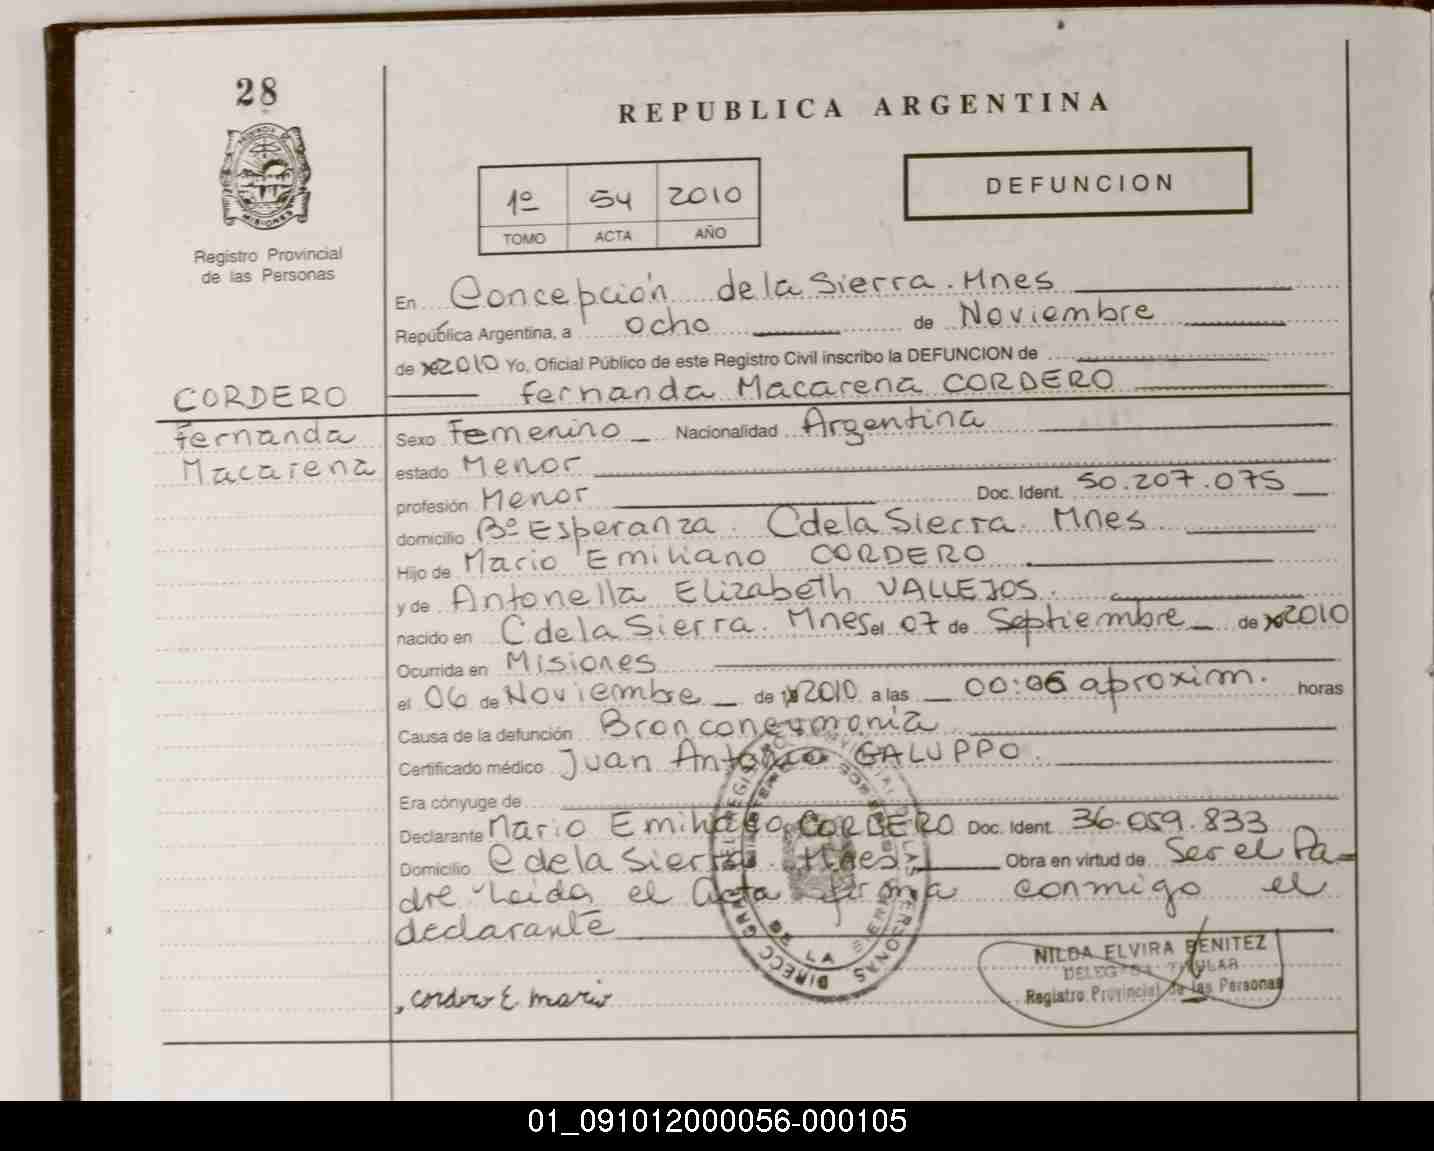 28
REPUBLICA ARGENTINA
MISIONES
Registro Provincial
de las Personas
1º 54 2010
TOMO ACTA AÑO
DEFUNCION
En Concepción de la Sierra. Mnes
República Argentina, a ocho de Noviembre
de 2010 Yo, Oficial Público de este Registro Civil inscribo la DEFUNCION de
Fernanda Macarena CORDERO
CORDERO
Fernanda
Macarena
Sexo Femenino Nacionalidad Argentina
estado Menor
profesión Menor Doc. Ident. 50.207.075
domicilio Bº Esperanza. C de la Sierra. Mnes
Hijo de Mario Emiliano CORDERO
y de Antonella Elizabeth VALLEJOS.
nacido en C de la Sierra. Mnes el 07 de Septiembre de 2010
Ocurrida en Misiones
el 06 de Noviembre de 2010 a las 00:06 aproxim. horas
Causa de la defunción Bronconeumonía
Certificado médico Juan Antonio GALUPPO.
Era cónyuge de
Declarante Mario Emiliano CORDERO Doc. Ident. 36.059.833
Domicilio C de la Sierra. Mnes Obra en virtud de Ser el Pa-
dre Leída el Acta firma conmigo el
declarante
NILDA ELVIRA BENITEZ
DELEGADA TITULAR
Registro Provincial de las Personas
Cordero E mario
01_091012000056-000105